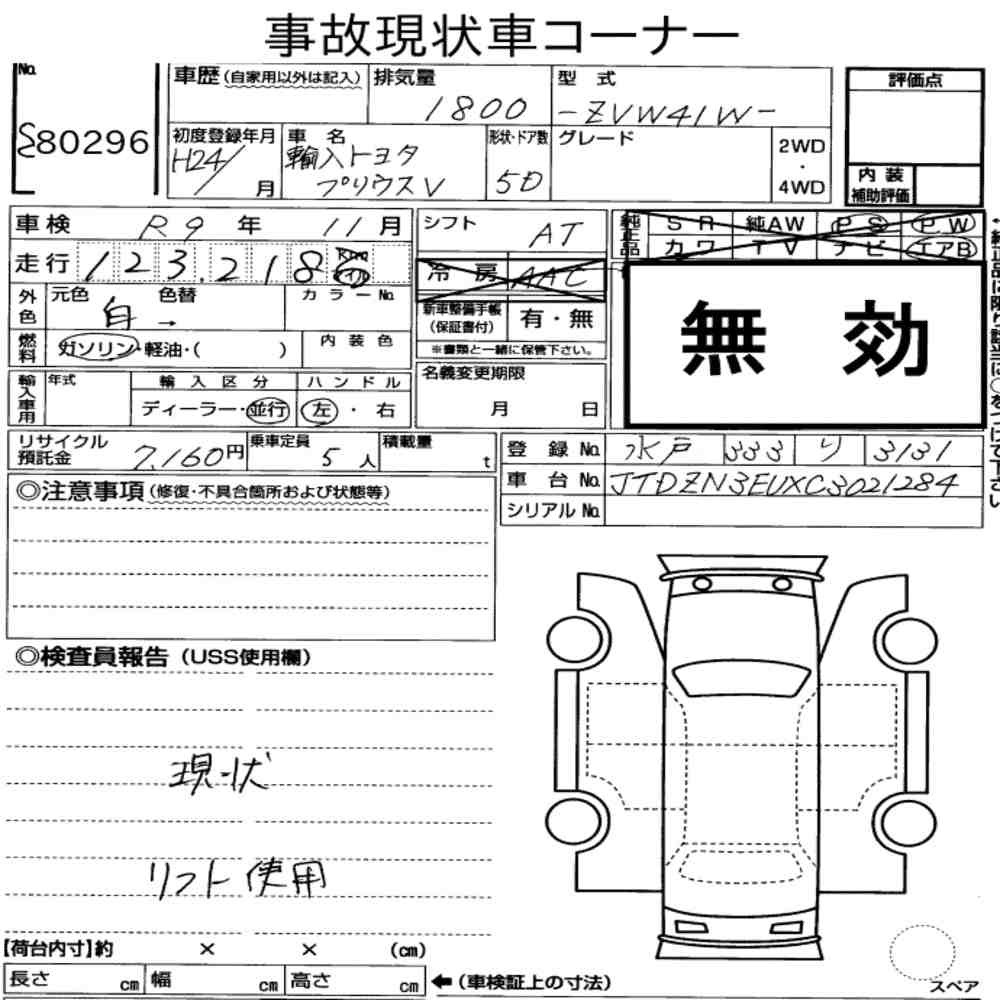 事故現状車コーナー
No.
80296
車歴(自家用以外は記入)
排気量
1800
型 式
-ZVW41W-
評価点
初度登録年月
H24/
月
車 名
輸入トヨタ
プリウスV
形状・ドア数
5D
グレード
2WD
・
4WD
内 装
補助評価
車検 R9 年 11月
シフト
AT
純正品
SR 純AW PS PW
カワ TV ナビ エアB
走行 123.218
Km
マイル
冷 房 AAC
外色
元色
白
色替
→
カラーNo.
新車整備手帳
(保証書付)
有・無
※書類と一緒に保管下さい。
無 効
燃料
ガソリン・軽油・( )
内装色
輸入車用
年式
輸入区分
ディーラー・並行
ハンドル
左・右
名義変更期限
月 日
リサイクル
預託金
7,160円
乗車定員
5人
積載量
t
登 録 No. 水戸 333 り 3131
車 台 No. JTDZN3EUXC3021284
シリアル No.
◎注意事項(修復・不具合箇所および状態等)
◎検査員報告(USS使用欄)
現状
リフト使用
【荷台内寸】約 × × (cm)
長さ cm 幅 cm 高さ cm
←(車検証上の寸法)
スペア